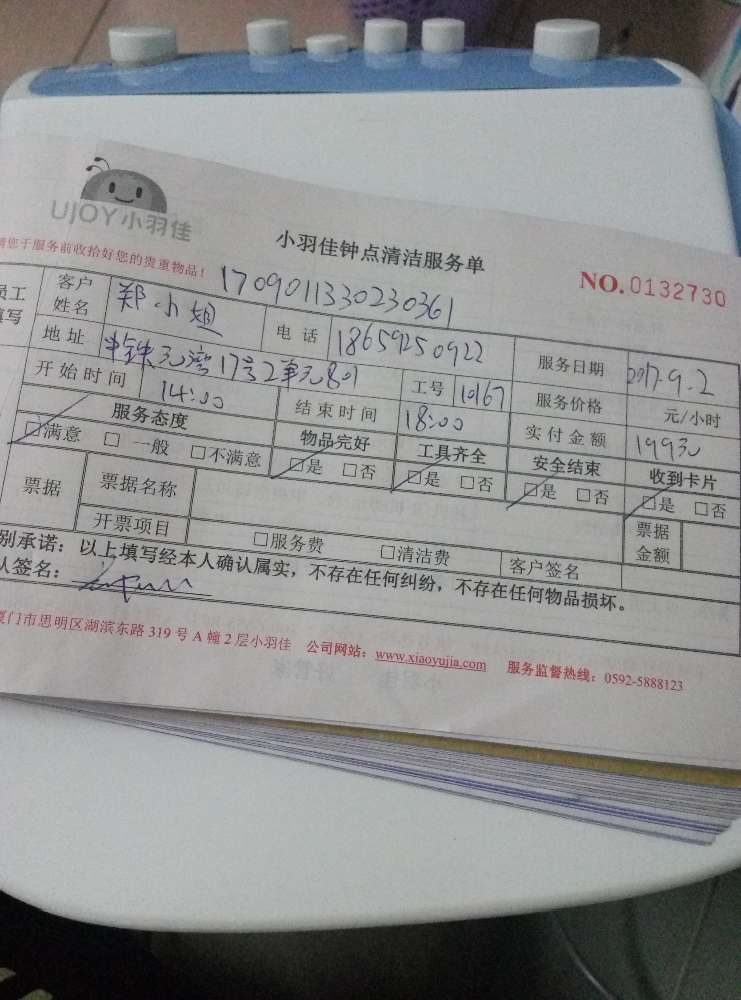 UJOY小羽佳
小羽佳钟点清洁服务单
请您于服务前收拾好您的贵重物品!
1709011330230361
NO.0132730
员工填写
客户姓名 郑小姐 电话 18659250922 服务日期 2017.9.2
地址 中铁元湾17号2单元801 工号 10167 服务价格 元/小时
开始时间 14:00 结束时间 18:00 实付金额 199元
服务态度 物品完好 工具齐全 安全结束 收到卡片
☑满意 □一般 □不满意 ☑是 □否 ☑是 □否 ☑是 □否 ☑是 □否
票据 票据名称 票据金额
开票项目 □服务费 □清洁费 客户签名
别承诺:以上填写经本人确认属实,不存在任何纠纷,不存在任何物品损坏。
人签名:
厦门市思明区湖滨东路319号A幢2层小羽佳 公司网站:www.xiaoyujia.com 服务监督热线:0592-5888123